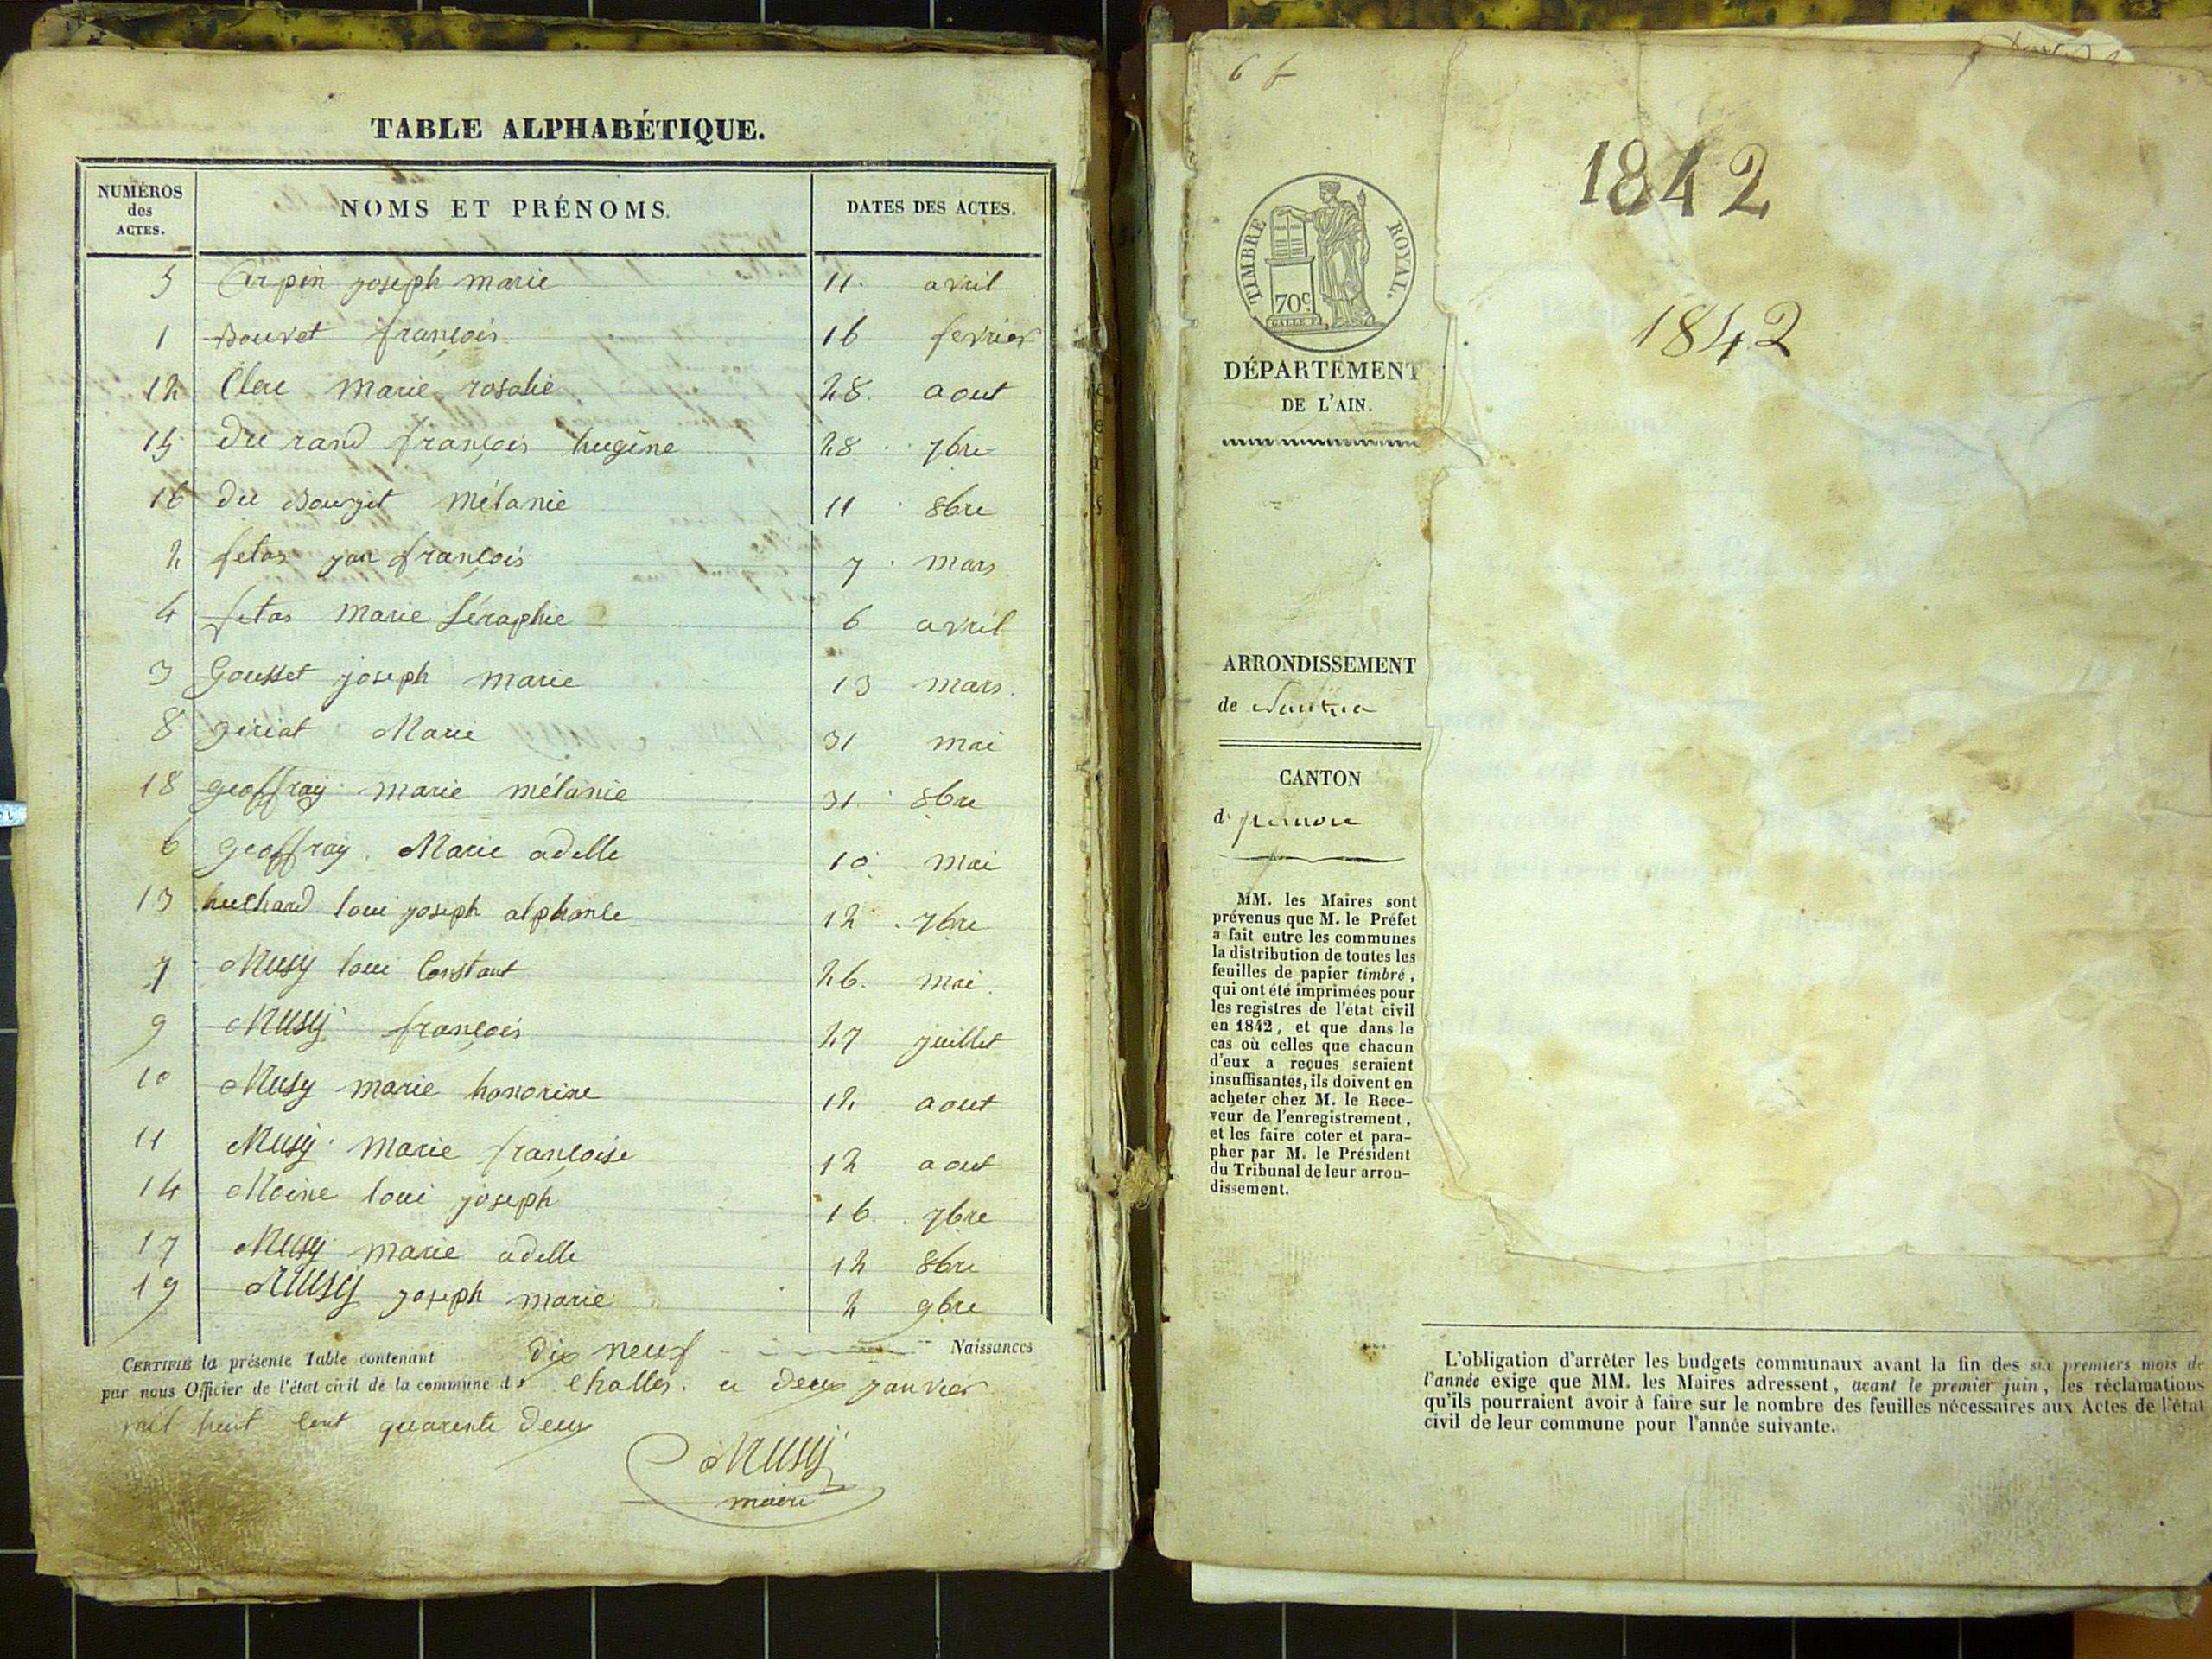 TABLE ALPHABÉTIQUE.
NUMÉROS des ACTES. NOMS ET PRÉNOMS. DATES DES ACTES.
5 Carpin joseph marie 11 avril
1 Bouvet françois 16 fevrier
12 Clerc marie rosalie 28 aout
15 du rand françois hugêne 28 7bre
16 du Bourjet mélanie 11 8bre
2 fetas jan françois 7 mars
4 fetas marie Séraphie 6 avril
3 Gousset joseph marie 13 mars
8 giriat Marie 31 mai
18 geoffray marie mélanie 31 8bre
6 geoffray Marie adelle 10 mai
13 huchard loui joseph alphonse 12 7bre
7 Musy loui Constant 26 mai
9 Musy françois 27 juillet
10 Musy marie honorine 12 aout
11 Musy marie françoise 12 aout
14 Moine loui joseph 16 7bre
17 Musy marie adelle 12 8bre
19 Musy joseph marie 2 9bre
CERTIFIÉ la présente Table contenant dix neuf Naissances
par nous Officier de l'état civil de la commune de Challes ce deux janvier
mil huit cent quarente deux
Musy
maire
6 f
1842
1842
TIMBRE ROYAL.
70c
DÉPARTEMENT
DE L'AIN.
ARRONDISSEMENT
de Nantua
CANTON
d
MM. les Maires sont
prévenus que M. le Préfet
a fait entre les communes
la distribution de toutes les
feuilles de papier timbré,
qui ont été imprimées pour
les registres de l'état civil
en 1842, et que dans le
cas où celles que chacun
d'eux a reçues seraient
insuffisantes, ils doivent en
acheter chez M. le Rece-
veur de l'enregistrement,
et les faire coter et para-
pher par M. le Président
du Tribunal de leur arron-
dissement.
L'obligation d'arrêter les budgets communaux avant la fin des six premiers mois de
l'année exige que MM. les Maires adressent, avant le premier juin, les réclamations
qu'ils pourraient avoir à faire sur le nombre des feuilles nécessaires aux Actes de l'état
civil de leur commune pour l'année suivante.